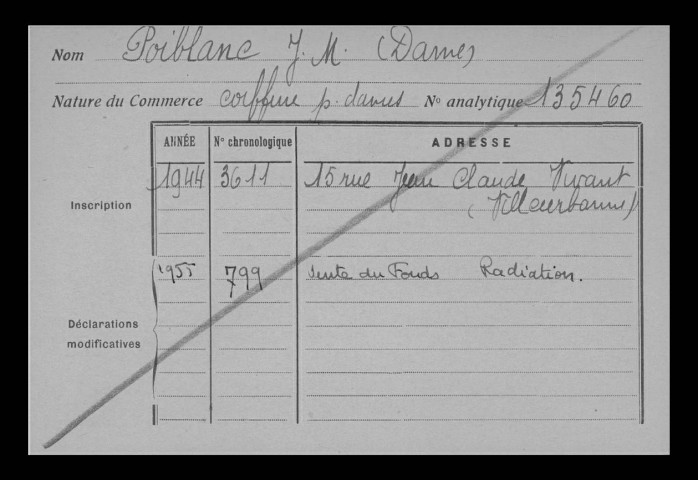 Nom Poiblanc J. M. (Dame)
Nature du Commerce coiffure p. dames N° analytique 135460
ANNÉE N° chronologique ADRESSE
Inscription 1944 3611 15 rue Jean Claude Vivant
(Villeurbanne)
1955 799 Vente du Fonds Radiation.
Déclarations
modificatives